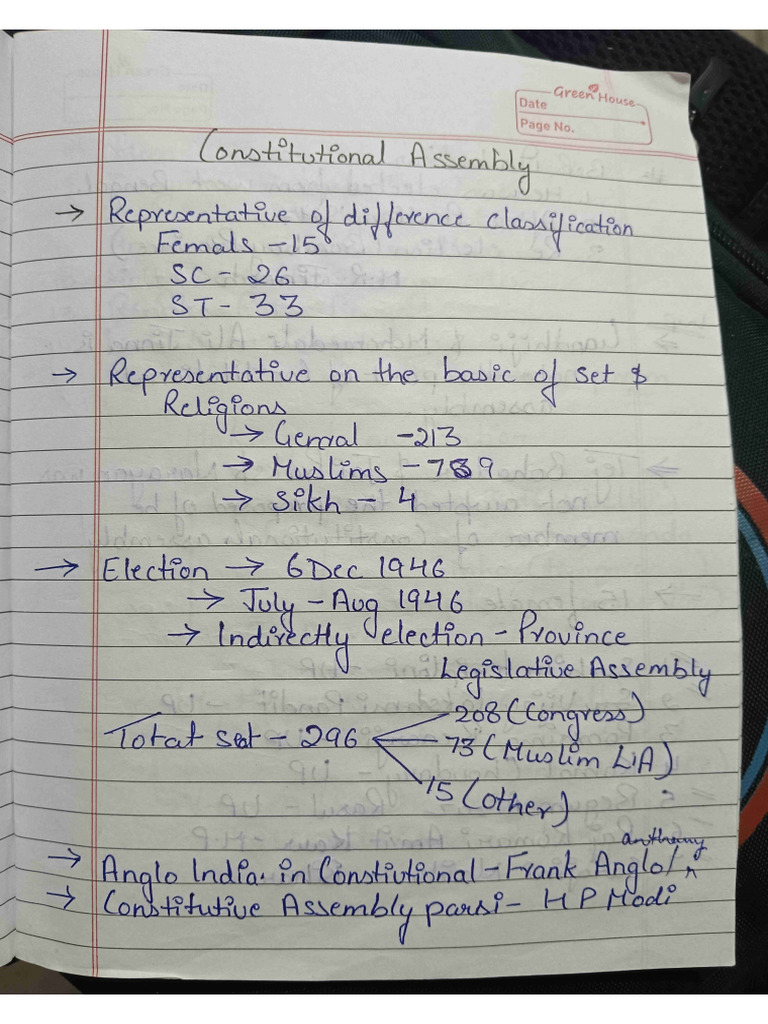 Green House
Date
Page No.
Constitutional Assembly
→ Representative of difference classification
Femals - 15
SC - 26
ST - 33
→ Representative on the basic of set &
Religions
→ Genral - 213
→ Muslims - 79
→ Sikh - 4
→ Election → 6 Dec 1946
→ July - Aug 1946
→ Indirectly election - Province
Legislative Assembly
208 (Congress)
Total seat - 296
73 (Muslim
15 (other)
anthony
→ Anglo India in Constiutional - Frank Anglo/
→ Constitutive Assembly parsi - H P Modi